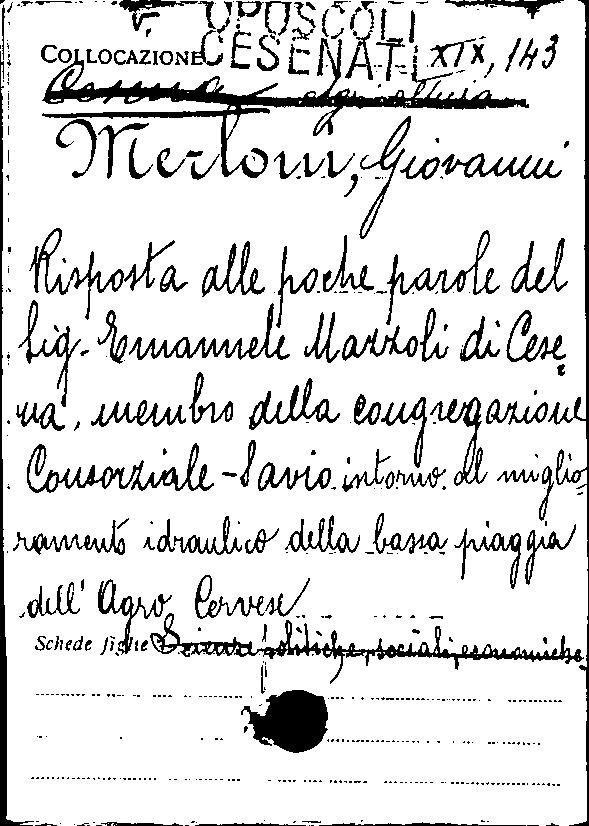 V. OPUSCOLI
COLLOCAZIONE CESENATI XIX, 143
Cesena agricoltura
Merloni, Giovanni
Risposta alle poche parole del
Sig. Emannele Mazzoli di Cese
na, membro della congregazione
Consorziale - Savio intorno al miglio
ramento idraulico della bassa piaggia
dell' Agro Cervese
Schede figlie Scienze politiche, sociali, economiche